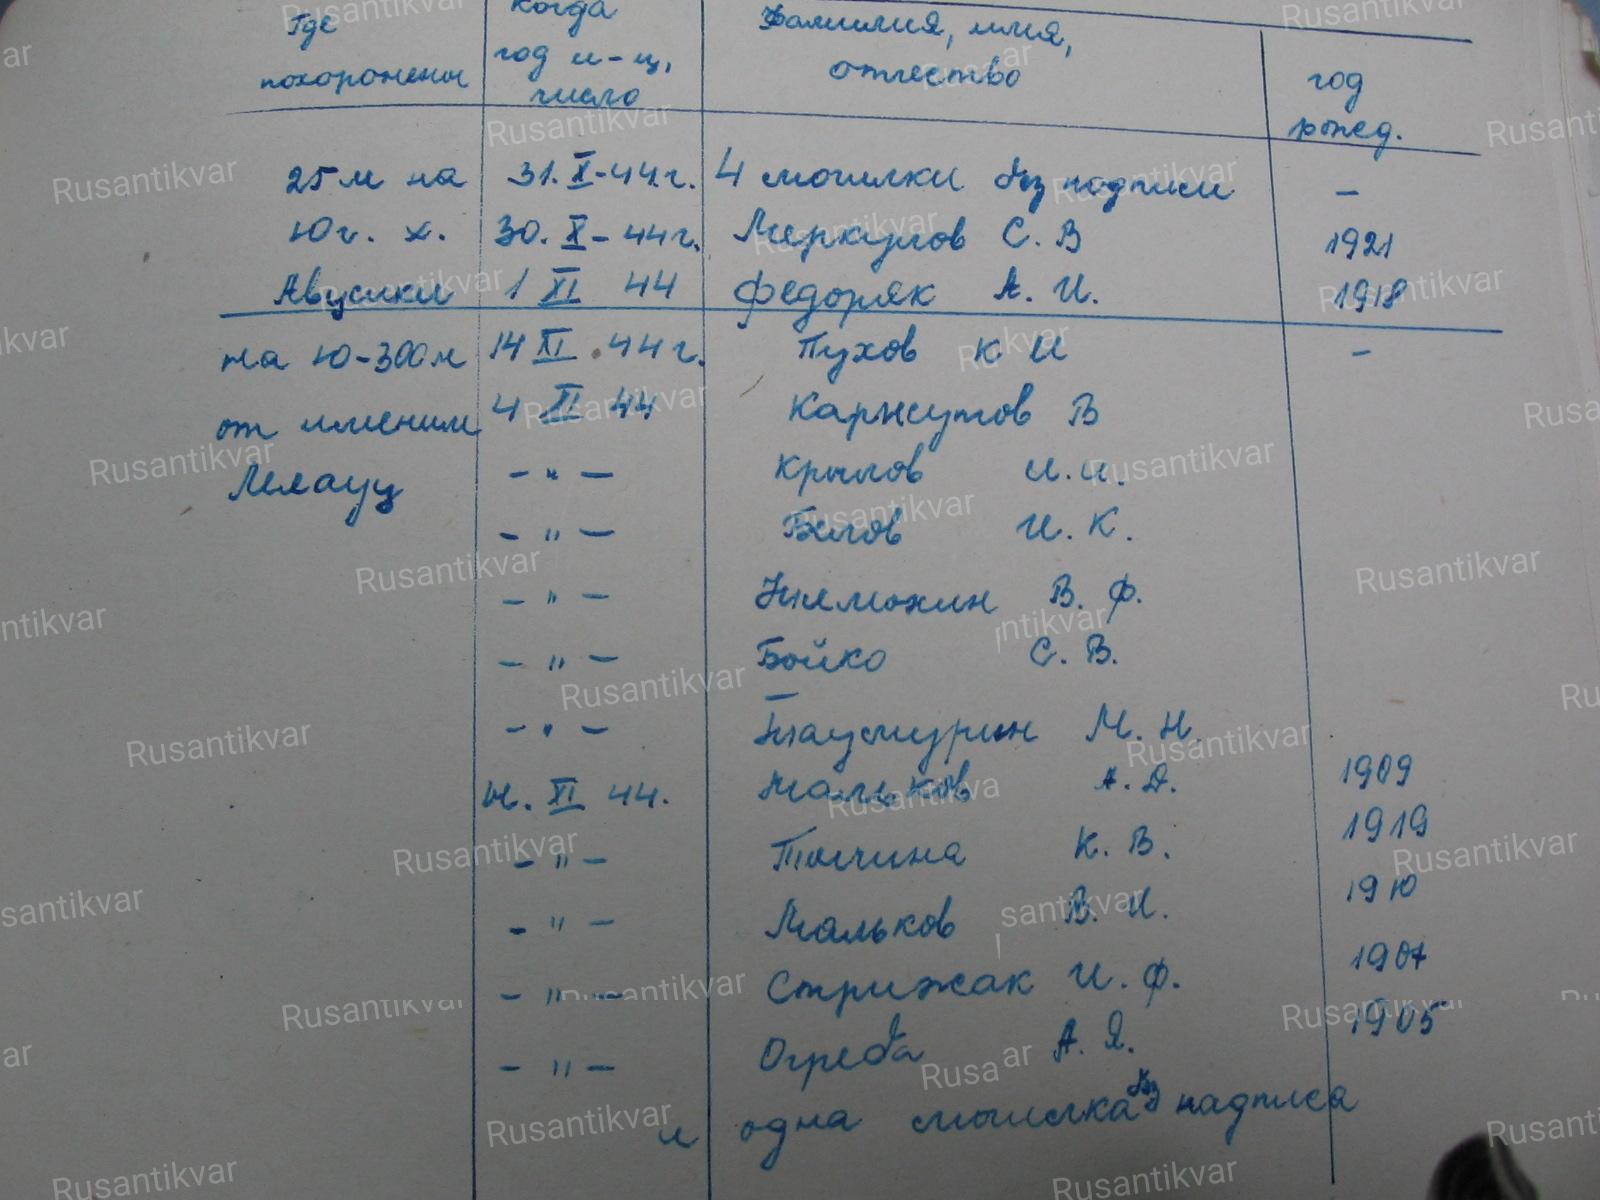 Где
похоронены
когда
год м-ц,
число
Фамилия, имя,
отчество
год
рожд.
25 м на 31. X-44 г. 4 могилки без надписи –
Юг. х. 30. X - 44 г. Меркулов С. В 1921
Авусики 1 XI 44 Федоряк А. И. 1918
на Ю-300 м 14 XI . 44 г. Пухов К И –
от имении 4 XI 44 В
Лелауц – " – Крылов И. И.
– " – Белов И. К.
– " – В. Ф.
– " – Бойко С. В.
– " – М. Н.
XI 44. Мальков А. Д. 1909
– " – К. В. 1919
– " – Мальков В. И. 1910
– " – Стрижак И. Ф. 1907
– " – Огреба А. Я. 1905
и одна могилка без надписа
Rusantikvar